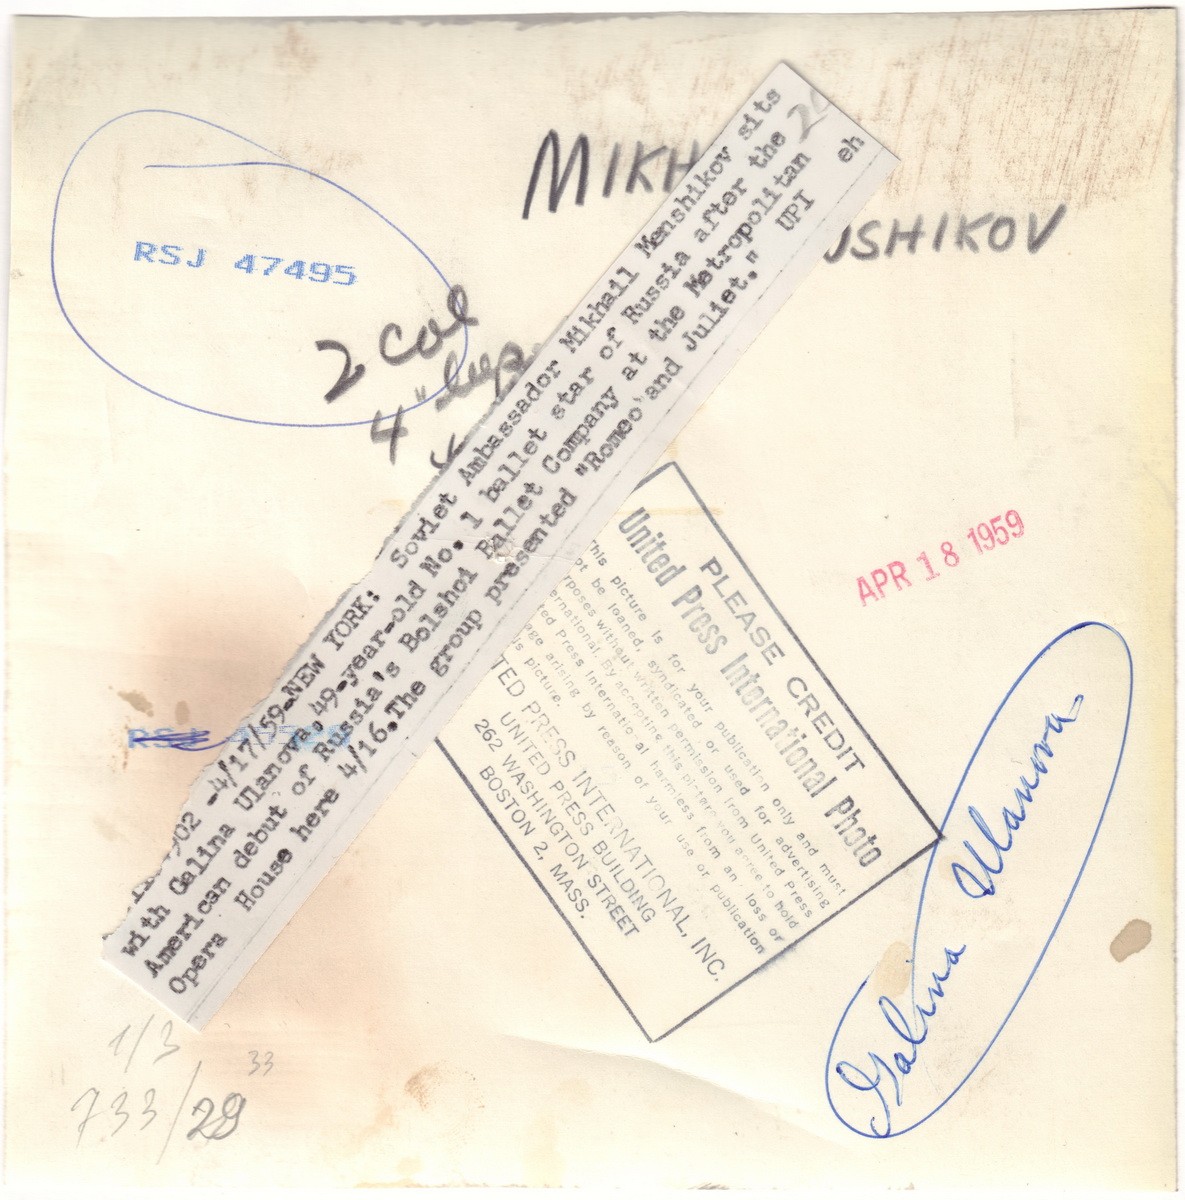 MIKH
USHIKOV
RSJ 47495
2 col
4" deep
-4/17/59-NEW YORK: Soviet Ambassador Mikhail Menshikov sits
with Galina Ulanova, 49-year-old No. 1 ballet star of Russia after the
American debut of Russia's Bolshoi Ballet Company at the Metropolitan
Opera House here 4/16.The group presented "Romeo and Juliet." UPI eh
PLEASE CREDIT
United Press International Photo
This picture is for your publication only and must
not be loaned, syndicated or used for advertising
purposes without written permission from United Press
International. By accepting this picture you agree to hold
United Press International harmless from any loss or
damage arising by reason of your use or publication
this picture.
TED PRESS INTERNATIONAL, INC.
UNITED PRESS BUILDING
262 WASHINGTON STREET
BOSTON 2, MASS.
APR 18 1959
RSJ
Galina Ulanova
1/3
733/28 33